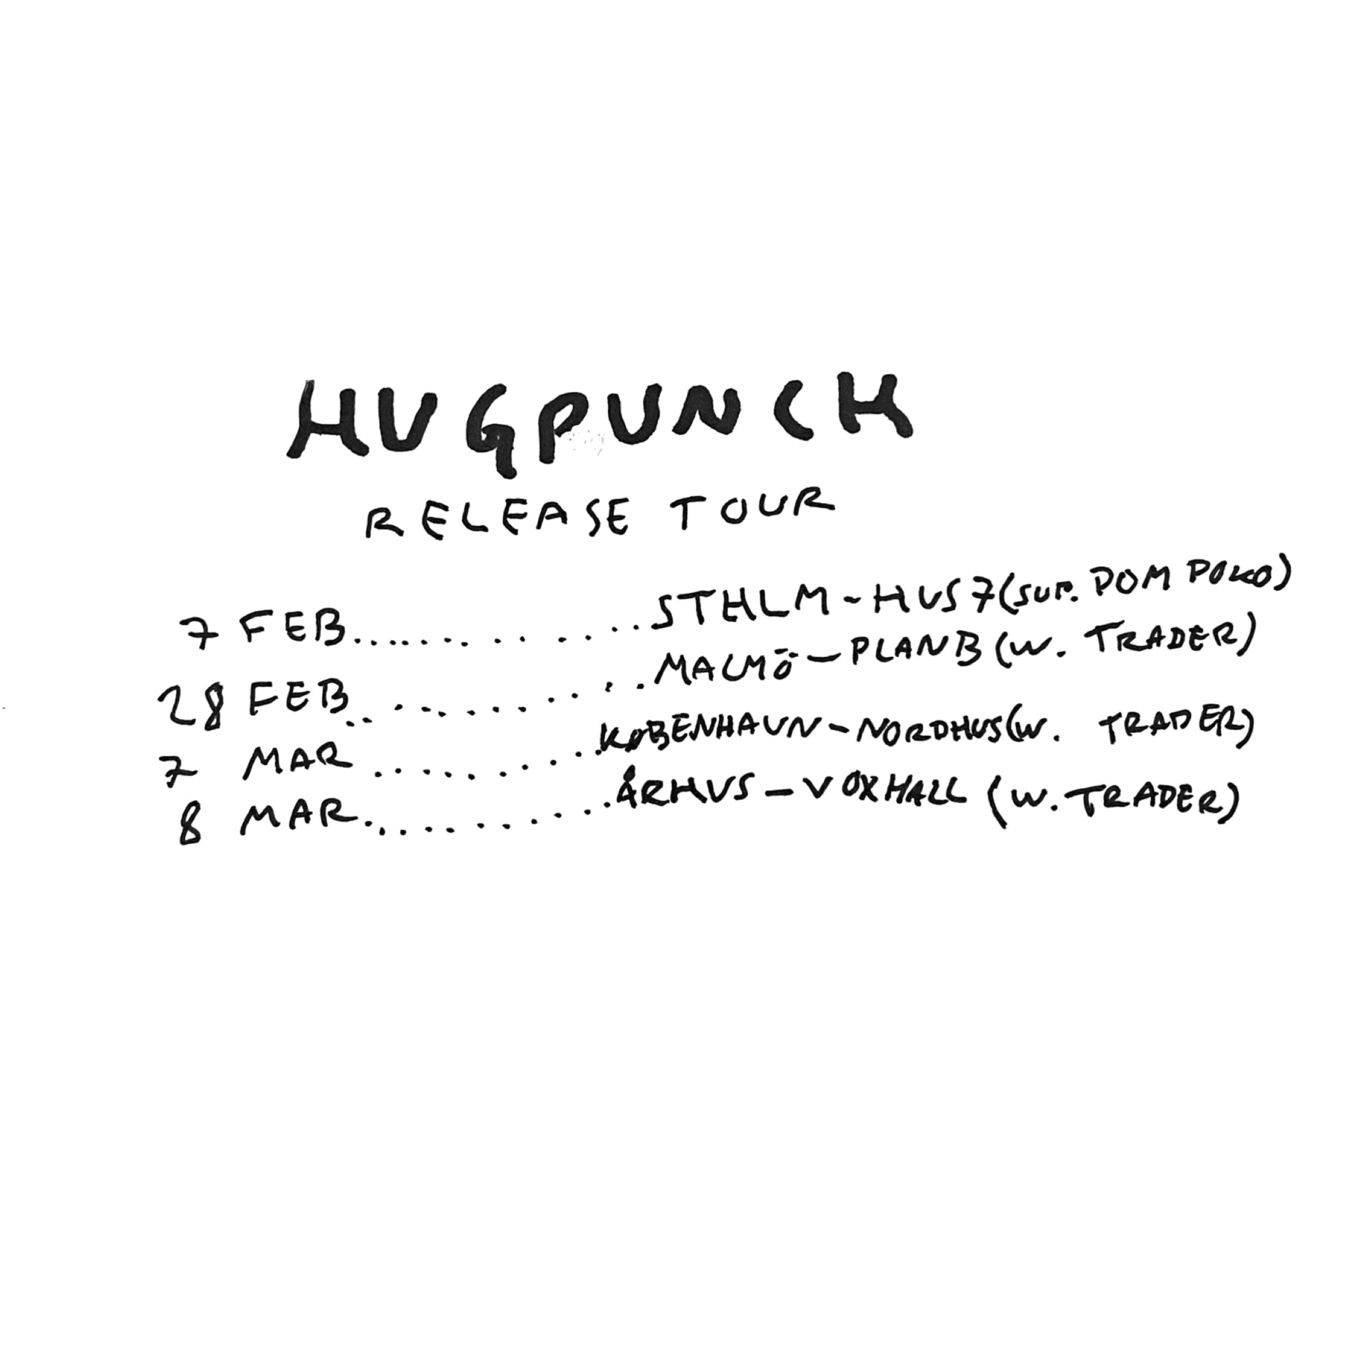 HUGPUNCH
RELEASE TOUR
7 FEB................STHLM - HUS 7 (SUP. POM POKO)
28 FEB..............MALMÖ - PLAN B (W. TRADER)
7 MAR..............KØBENHAVN - NORDHUS (W. TRADER)
8 MAR..............ÅRHUS - VOXHALL (W. TRADER)